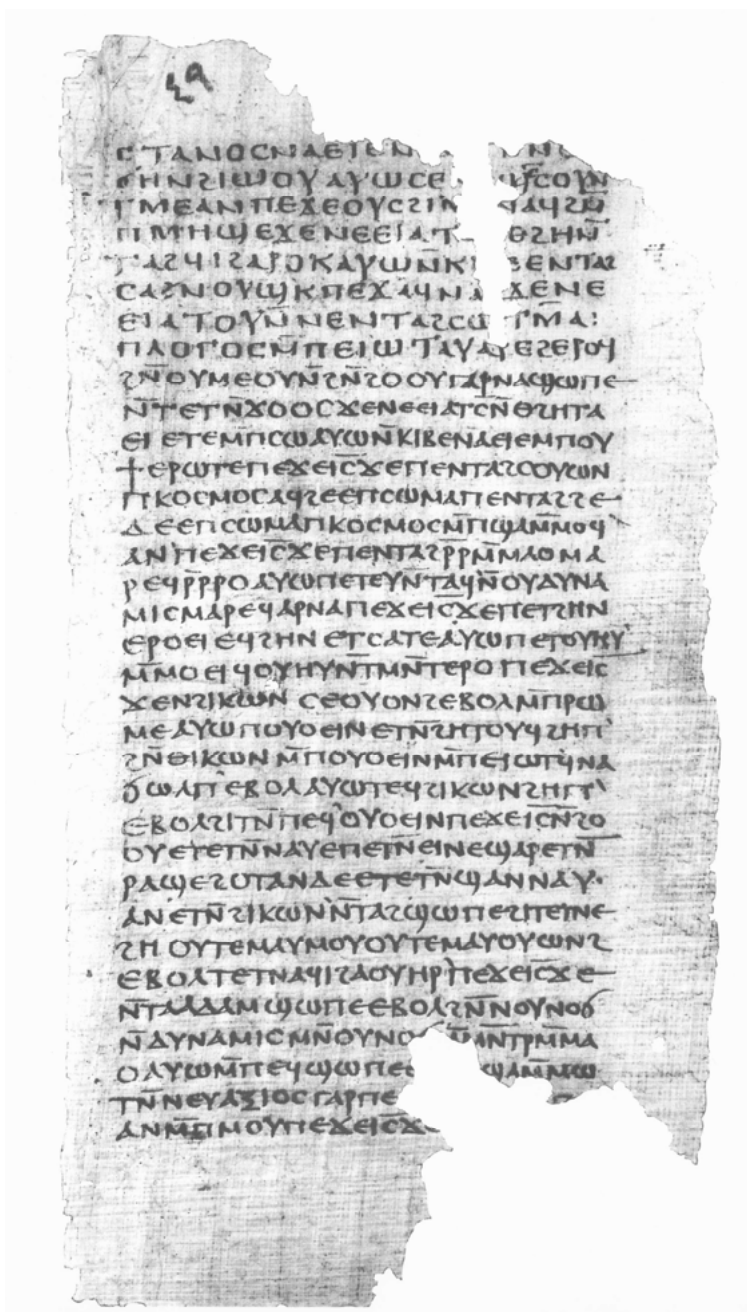 ⲥⲧⲁⲛⲟⲥⲛⲁⲉⲓⲉⲛ
ϭⲏⲛϩⲓⲱⲟⲩⲁⲩⲱⲥⲉ ϣⲥⲟⲩⲛ
ⲧⲙⲉⲁⲛⲡⲉϫⲉⲟⲩⲥϩⲓⲙ ⲛⲁϥϩⲛ̄
ⲡⲙⲏϣⲉϫⲉⲛⲉⲉⲓⲁⲧ ⲑϩⲏⲛ̄
ⲧⲁϩϥⲓϩⲁⲣⲟⲕⲁⲩⲱⲛ̄ⲕⲓ ⲃⲉⲉⲛⲧⲁϩ
ⲥⲁⲛⲟⲩϣⲕⲡⲉϫⲁϥⲛⲁ ϫⲉⲛⲉ
ⲉⲓⲁⲧⲟⲩⲛ̄ⲛⲉⲛⲧⲁϩⲥⲱ ⲧⲙ̄ⲁ
ⲡⲗⲟⲅⲟⲥⲙ̄ⲡⲉⲓⲱⲧⲁⲩⲁⲣⲉϩⲉⲣⲟϥ
ϩⲛ̄ⲟⲩⲙⲉⲟⲩⲛ̄ϩⲛ̄ϩⲟⲟⲩⲅⲁⲣⲛⲁϣⲱⲡⲉ
ⲛ̄ⲧⲉⲧⲛ̄ϫⲟⲟⲥϫⲉⲛⲉⲉⲓⲁⲧⲥ̄ⲛ̄ⲑϩⲏⲧⲁ
ⲉⲓⲉⲧⲉⲙⲡⲥⲱⲁⲩⲱⲛ̄ⲕⲓⲃⲉⲛⲁⲉⲓⲉⲙⲡⲟⲩ
ϯⲉⲣⲱⲧⲉⲡⲉϫⲉⲓⲥ̄ϫⲉⲡⲉⲛⲧⲁϩⲥⲟⲩⲱⲛ
ⲡⲕⲟⲥⲙⲟⲥⲁϥϩⲉⲉⲡⲥⲱⲙⲁⲡⲉⲛⲧⲁϩϩⲉ
ⲇⲉⲉⲡⲥⲱⲙⲁⲡⲕⲟⲥⲙⲟⲥⲙ̄ⲡϣⲁⲙ̄ⲙⲟϥ
ⲁⲛⲡⲉϫⲉⲓⲥ̄ϫⲉⲡⲉⲛⲧⲁϩⲣ̄ⲣⲙ̄ⲙⲁⲟⲙⲁ
ⲣⲉϥⲣ̄ⲣⲣⲟⲁⲩⲱⲡⲉⲧⲉⲩⲛ̄ⲧⲁϥⲛ̄ⲟⲩⲇⲩⲛⲁ
ⲙⲓⲥⲙⲁⲣⲉϥⲁⲣⲛⲁⲡⲉϫⲉⲓⲥ̄ϫⲉⲡⲉⲧϩⲏⲛ
ⲉⲣⲟⲉⲓⲉϥϩⲏⲛⲉⲧⲥⲁⲧⲉⲁⲩⲱⲡⲉⲧⲟⲩⲏⲩ
ⲙ̄ⲙⲟⲉⲓϥⲟⲩⲏⲩⲛ̄ⲧⲙⲛ̄ⲧⲉⲣⲟⲡⲉϫⲉⲓⲥ
ϫⲉⲛϩⲓⲕⲱⲛⲥⲉⲟⲩⲟⲛϩⲉⲃⲟⲗⲙ̄ⲡⲣⲱ
ⲙⲉⲁⲩⲱⲡⲟⲩⲟⲉⲓⲛⲉⲧⲛ̄ϩⲏⲧⲟⲩϥϩⲏⲡ
ϩⲛ̄ⲑⲓⲕⲱⲛⲙ̄ⲡⲟⲩⲟⲉⲓⲛⲙ̄ⲡⲉⲓⲱⲧϥⲛⲁ
ϭⲱⲗⲡⲉⲃⲟⲗⲁⲩⲱⲧⲉϥϩⲓⲕⲱⲛϩⲏⲡ
ⲉⲃⲟⲗϩⲓⲧⲛ̄ⲡⲉϥⲟⲩⲟⲉⲓⲛⲡⲉϫⲉⲓⲥ̄ⲛ̄ϩⲟ
ⲟⲩⲉⲧⲉⲧⲛ̄ⲛⲁⲩⲉⲡⲉⲧⲛ̄ⲉⲓⲛⲉϣⲁⲣⲉⲧⲛ̄
ⲣⲁϣⲉϩⲟⲧⲁⲛⲇⲉⲉⲧⲉⲧⲛ̄ϣⲁⲛⲛⲁⲩ
ⲁⲛⲉⲧⲛ̄ϩⲓⲕⲱⲛⲛ̄ⲧⲁϩϣⲱⲡⲉϩⲓⲧⲉⲧⲛⲉ
ϩⲏ ⲟⲩⲧⲉⲙⲁⲩⲙⲟⲩⲟⲩⲧⲉⲙⲁⲩⲟⲩⲱⲛϩ
ⲉⲃⲟⲗⲧⲉⲧⲛⲁϥⲓϩⲁⲟⲩⲏⲣⲡⲉϫⲉⲓⲥ̄ϫⲉ
ⲛ̄ⲧⲁⲁⲇⲁⲙϣⲱⲡⲉⲉⲃⲟⲗϩⲛ̄ⲛⲟⲩⲛⲟϭ
ⲛ̄ⲇⲩⲛⲁⲙⲓⲥⲙⲛ̄ⲟⲩⲛⲟ ⲙ̄ⲙⲛ̄ⲧⲣⲙ̄ⲙⲁ
ⲟⲁⲩⲱⲙ̄ⲡⲉϥϣⲱⲡⲉ ϣⲁⲙ̄ⲙⲱ
ⲧⲛ̄ⲛⲉⲩⲁⲝⲓⲟⲥⲅⲁⲣⲡⲉ
ⲁⲛⲙ̄ⲡⲙⲟⲩⲡⲉϫⲉⲓⲥ̄ϫ